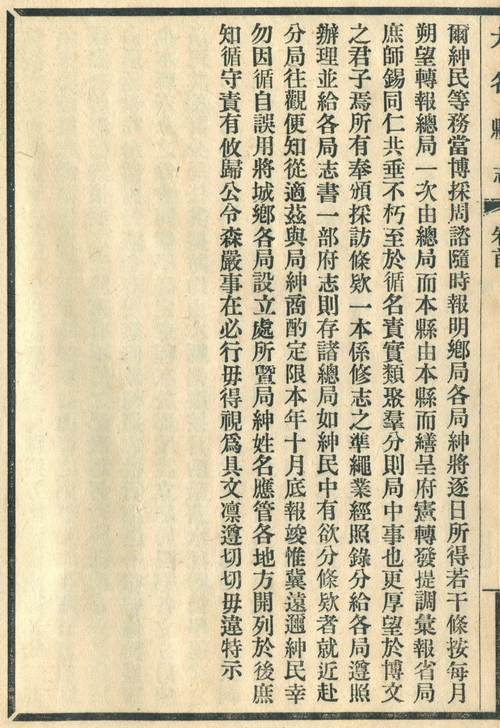 大名縣志
卷首
爾紳民等務當博採周諮隨時報明鄉局各局紳將逐日所得若干條按每月
朔望轉報總局一次由總局而本縣由本縣而繕呈府憲轉發提調彙報省局
庶師錫同仁共垂不朽至於循名責實類聚羣分則局中事也更厚望於博文
之君子焉所有奉頒採訪條欵一本係修志之準繩業經照錄分給各局遵照
辦理並給各局志書一部府志則存諸總局如紳民中有欲分條欵者就近赴
分局往觀便知從適茲與局紳商酌定限本年十月底報竣惟冀遠邇紳民幸
勿因循自誤用將城鄉各局設立處所暨局紳姓名應管各地方開列於後庶
知循守責有攸歸公令森嚴事在必行毋得視爲具文凛遵切切毋違特示